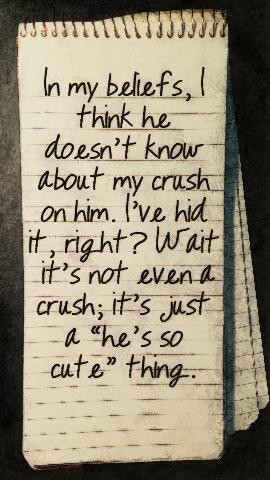 In my beliefs, I
think he
doesn't know
about my crush
on him. I've hid
it, right? Wait
it's not even a
crush; it's just
a "he's so
cute" thing.